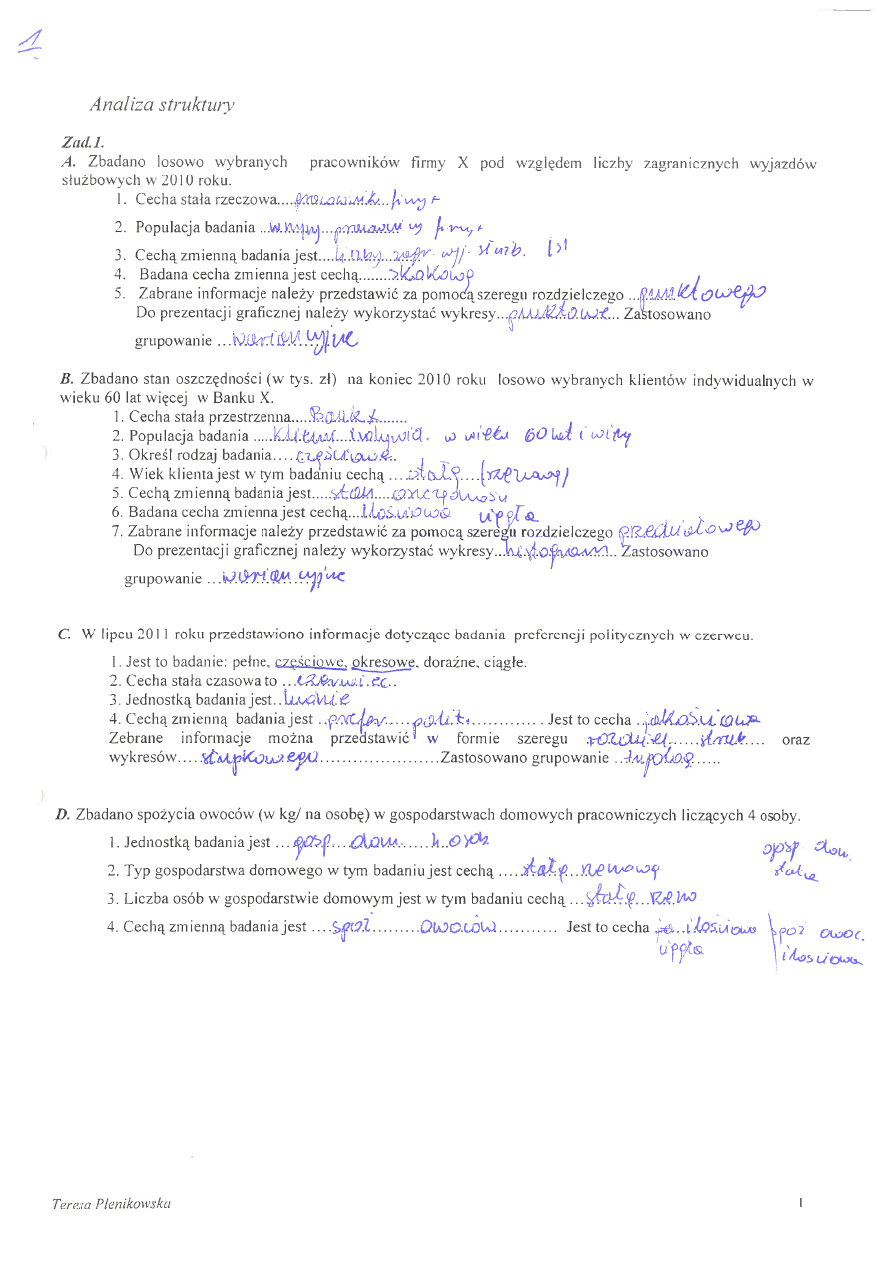 1
Analiza struktury
Zad.1.
A. Zbadano losowo wybranych pracowników firmy X pod względem liczby zagranicznych wyjazdów
służbowych w 2010 roku.
1. Cecha stała rzeczowa....pracownik...firmy x
2. Populacja badania ...wszyscy...pracownicy firmy x
3. Cechą zmienną badania jest....liczby...zagr. wyj. służb.
4. Badana cecha zmienna jest cechą.......skokową
5. Zabrane informacje należy przedstawić za pomocą szeregu rozdzielczego ...punktowego
Do prezentacji graficznej należy wykorzystać wykresy...punktowe... Zastosowano
grupowanie ...wariancyjne
B. Zbadano stan oszczędności (w tys. zł) na koniec 2010 roku losowo wybranych klientów indywidualnych w
wieku 60 lat więcej w Banku X.
1. Cecha stała przestrzenna....Bank X.......
2. Populacja badania .....Klienci...indywid. w wieku 60 lat i więcej
3. Określ rodzaj badania....częściowe..
4. Wiek klienta jest w tym badaniu cechą ....stałą....(rzeczową)
5. Cechą zmienną badania jest.....stan....oszczędności
6. Badana cecha zmienna jest cechą...ilościowa ciągła
7. Zabrane informacje należy przedstawić za pomocą szeregu rozdzielczego przedziałowego
Do prezentacji graficznej należy wykorzystać wykresy...histogram... Zastosowano
grupowanie ...wariancyjne
C. W lipcu 2011 roku przedstawiono informacje dotyczące badania preferencji politycznych w czerwcu.
1. Jest to badanie: pełne, częściowe, okresowe, doraźne, ciągłe.
2. Cecha stała czasowa to ...czerwiec..
3. Jednostką badania jest..ludzie
4. Cechą zmienną badania jest ..prefer.....polit............... Jest to cecha ..jakościowa
Zebrane informacje można przedstawić w formie szeregu .rozdziel......struk.... oraz
wykresów....słupkowego.....................Zastosowano grupowanie ..typolog.....
D. Zbadano spożycia owoców (w kg/ na osobę) w gospodarstwach domowych pracowniczych liczących 4 osoby.
1. Jednostką badania jest ...gosp....dom......4..osob
gosp dom.
2. Typ gospodarstwa domowego w tym badaniu jest cechą .....stałą...rzeczową
stała
3. Liczba osób w gospodarstwie domowym jest w tym badaniu cechą ...stałą...rzecz
4. Cechą zmienną badania jest ....spoż.........owoców........... Jest to cecha ...ilościowa
ciągła
spoż owoc.
ilościowa
Teresa Plenikowska
1